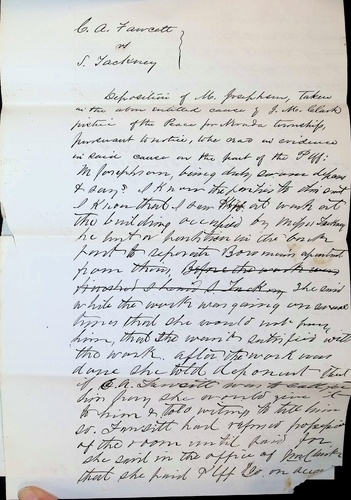 C. A. Fawcett
vs
S. Tackney
Deposition of M. Josephson, taken
in the above entitled cause of J. M. Clark
justice of the Peace for Nevada township,
pursuant to notice, to be read as evidence
in said cause on the part of the Plff:
M Josephson, being duly sworn deposes
& says I Know the parties to this suit
I Know that I saw Plff at work at
the building occupied by Miss Tackney
he put a partition in the back
part to separate Bowmans apartment
from them, Before the work was
finished I heard S Tackney She said
while the work was going on several
times that she would not pay
him, that she wasn't satisfied with
the work. After the work was
done she told deponent that
if C. A. Fawcett was to
him pay she would give it
to him & told witness to tell him
so. Fawcett had refused possession
of the room until paid for
she said in the office of
that she paid Plff $20. on acct